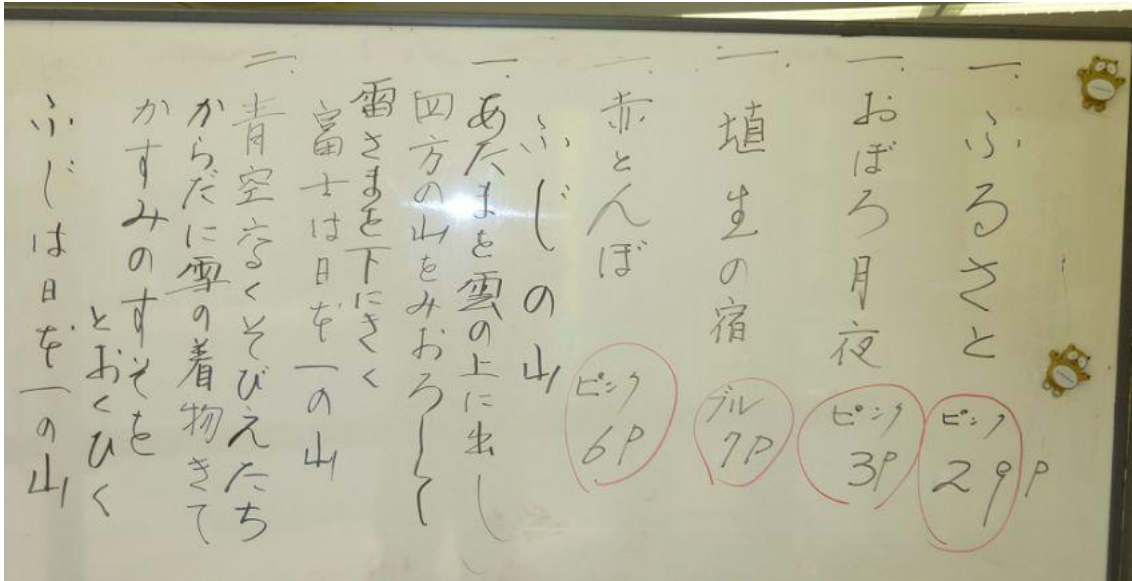 一. ふるさと ピンク 29P
一. おぼろ月夜 ピンク 3P
一. 埴生の宿 ブルー 7P
一. 赤とんぼ ピンク 6P
ふじの山
一. あたまを雲の上に出し
四方の山をみおろして
雷さまを下にきく
富士は日本一の山
二. 青空高くそびえたち
からだに雪の着物きて
かすみのすそを
とおくひく
ふじは日本一の山